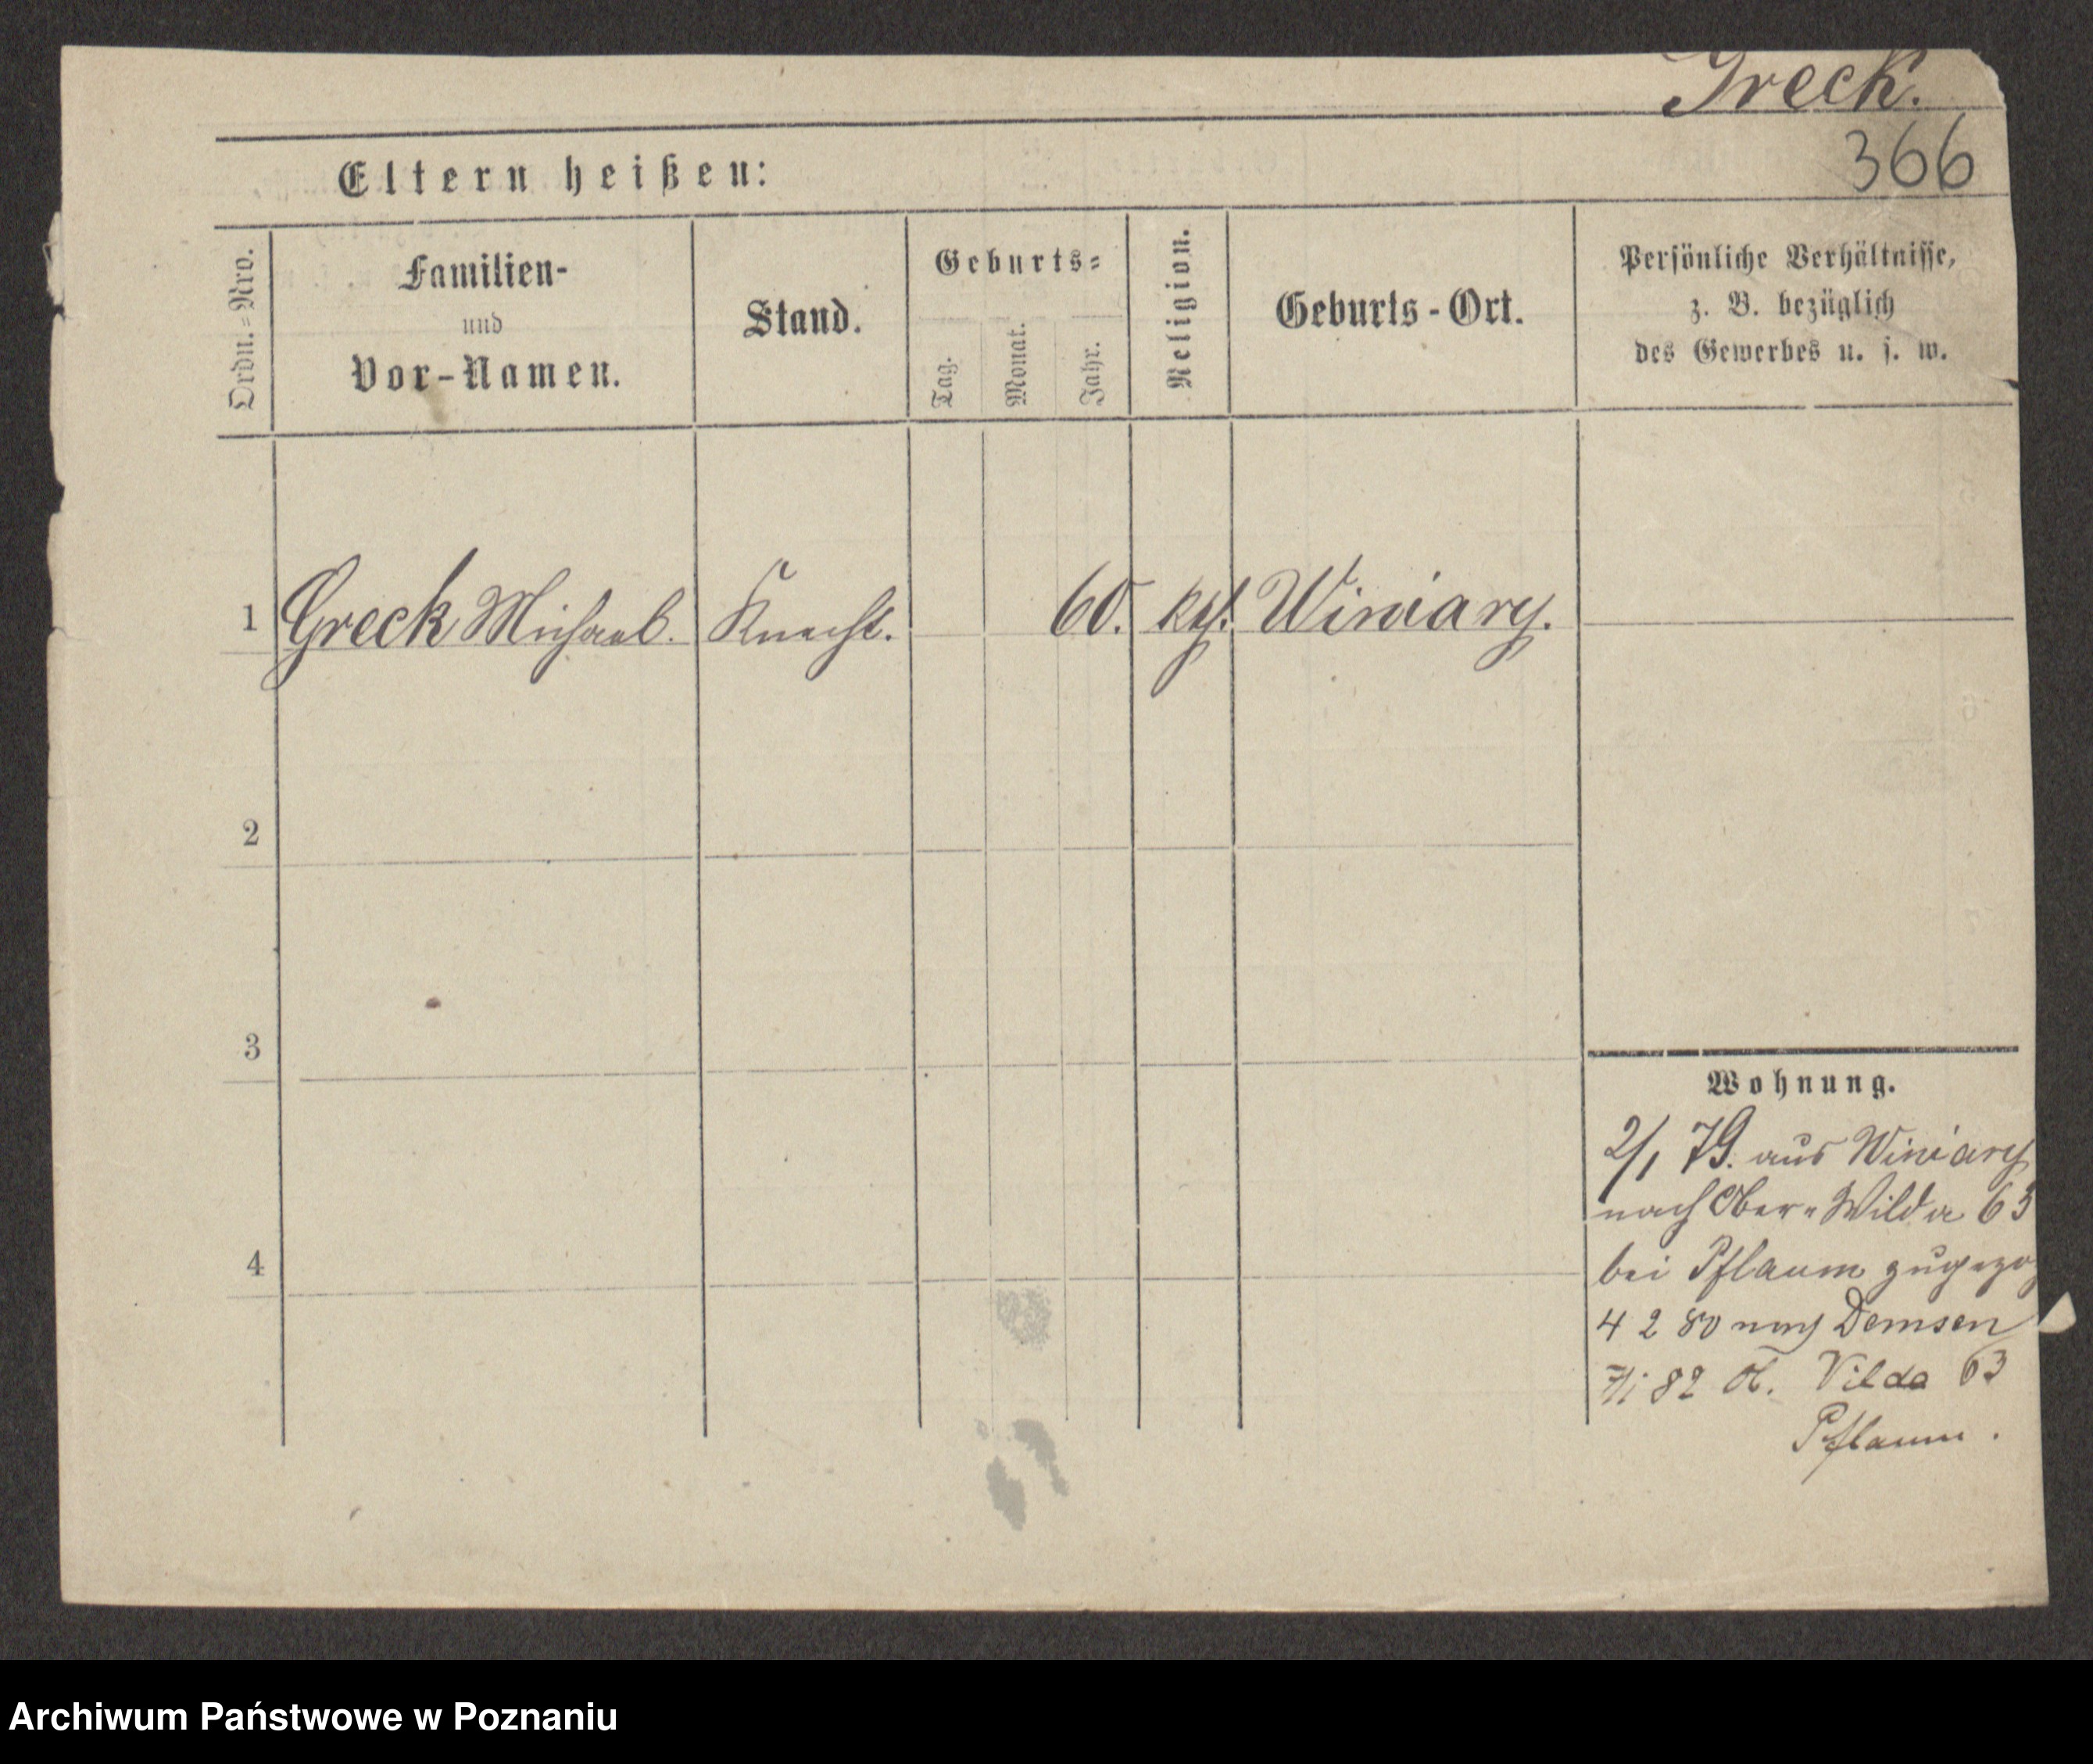 Greck.
366
Eltern heißen:
Ordn.=Nro.
Familien-
und
Vor-Namen.
Stand.
Geburts=
Tag.
Monat.
Jahr.
Religion.
Geburts-Ort.
Persönliche Verhältnisse,
z. B. bezüglich
des Gewerbes u. s. w.
1 Greck Michael. Knecht. 60. kth. Winiary.
2
3
4
Wohnung.
2/1 79. aus Winiary
nach Ober-Wilda 63
bei Pflaum zugezog
4 2 80 nach Demsen
7/1 82 O. Vilda 63
Pflaum.
Archiwum Państwowe w Poznaniu